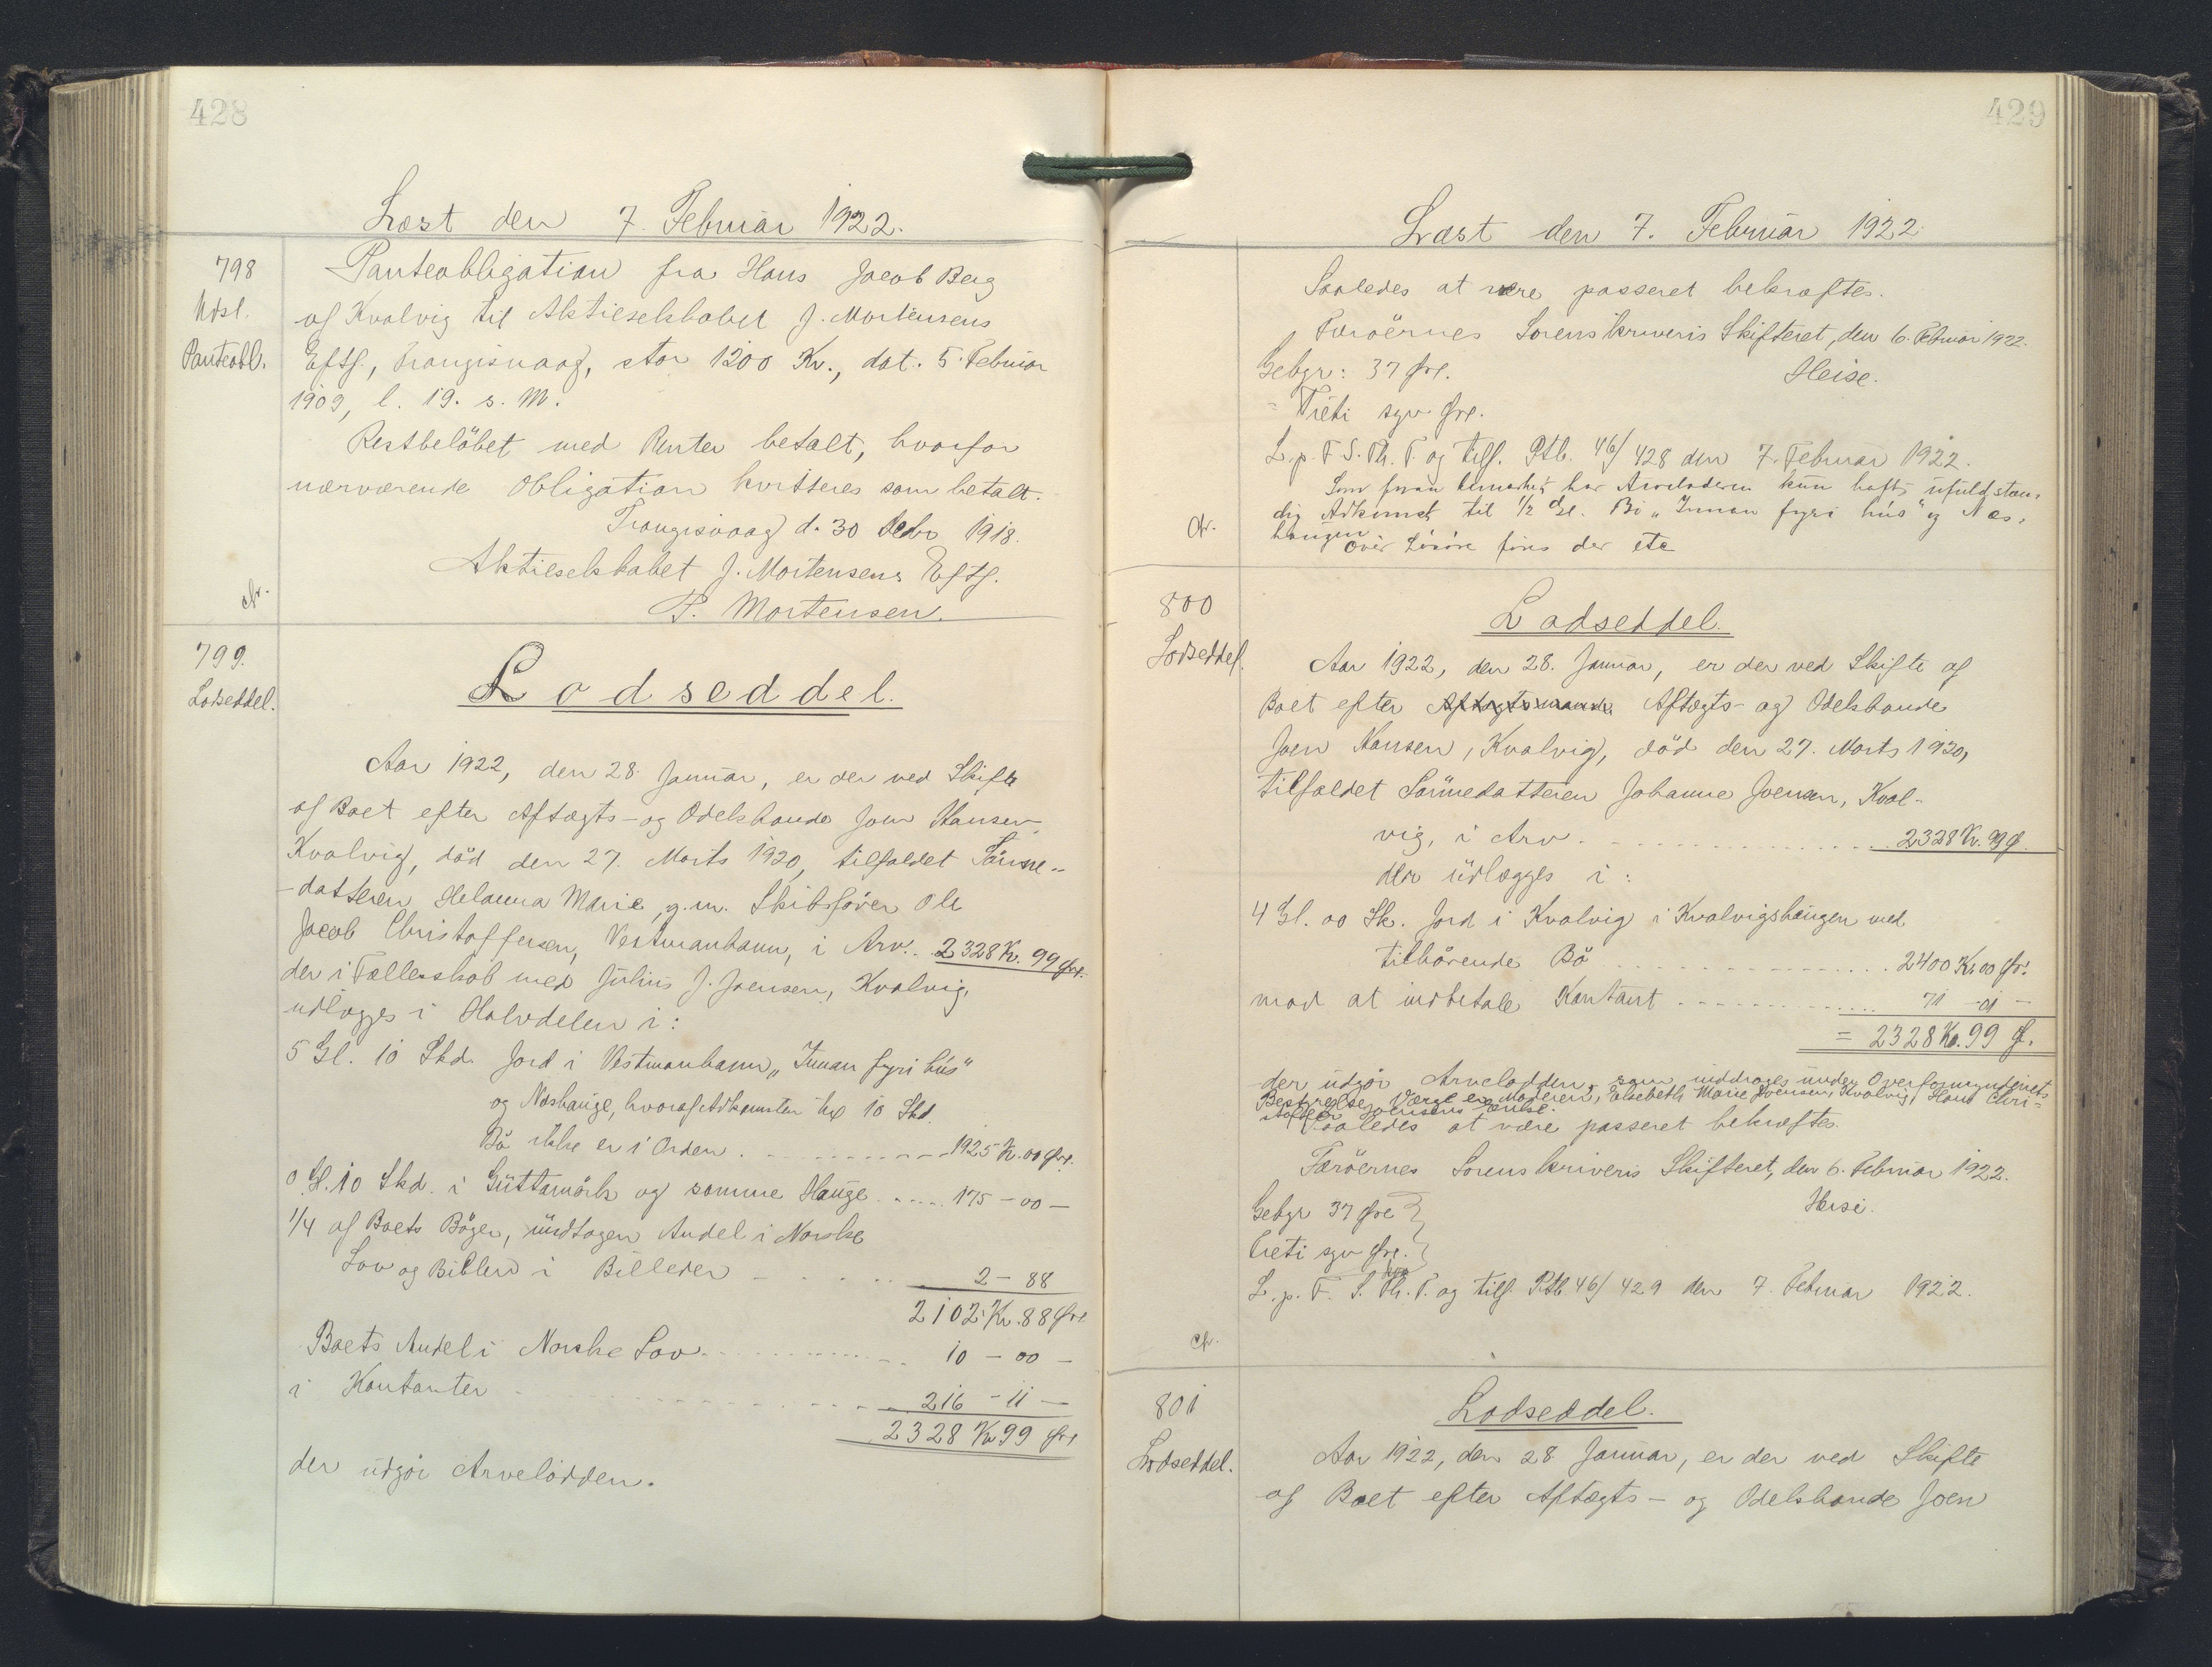 428
Læst den 7. Februar 1922.
798
Udsl.
Panteobl.
Panteobligation fra Hans Jacob Berg
af Kvalvig til Aktieselskabet J. Mortensens
Eftf., Trangisvaag, stor 1200 Kr., dat. 5. Februar
1909, l. 19. s. M.
Restbelöbet med Renter betalt, hvorfor
nærværende Obligation kvitteres som betalt.
Trangisvaag d. 30 Decbr 1918.
Aktieselskabet J. Mortensens Eftf.
P. Mortensen.
799.
Lodseddel.
Lodseddel.
Aar 1922, den 28. Januar, er der ved Skifte
af Boet efter Aftægts- og Odelsbonde Joen Hansen,
Kvalvig, död den 27. Marts 1920, tilfaldet Sönne-
-datteren Helanna Marie, g.m. Skibsförer Ole
Jacob Christoffersen, Vestmanhavn, i Arv.. 2328 Kr. 99 Øre.
der i Fællesskab med Julius J. Joensen, Kvalvig,
udlægges i Halvdelen i:
5 Gl. 10 Skd. Jord i Vestmanhavn, „Innan fyri hús"
og Neshauge, hvoraf Adkomsten til 10 Skd.
Bö ikke er i Orden. 1925 Kr. 00 Øre.
0 Gl. 10 Skd. i Guttamörk og samme Hauge 175 - 00 -
1/4 af Boets Böger, undtagen Andel i Norske
Lov og Bibler i Billeder 2 - 88
2102 Kr. 88 Øre
Boets Andel i Norske Lov 10 - 00 -
i Kontanter 216 - 11 -
2328 Kr 99 Øre
der udgör Arvelodden.
429
Læst den 7. Februar 1922.
Saaledes at være passeret bekræftes.
Færöernes Sorenskriveris Skifteret, den 6. Februar 1922.
Gebyr: 37 Øre. Heise.
= Treti syv Øre.
L. p. F. S. Th. T. og tilf. Ptb. 46/428 den 7. Februar 1922.
Som foran bemærket har Arveladeren kun haft ufuldstæn-
dig Adkomst til 1/2 Gl. Bö „Innan fyri hús" og Nes-
haugen
Over Lösöre fins der ete
800
Lodseddel.
Lodseddel.
Aar 1922, den 28. Januar, er der ved Skifte af
Boet efter Aftægtsmand Aftægts- og Odelsbonde
Joen Hansen, Kvalvig, död den 27. Marts 1920,
tilfaldet Sönnedatteren Johanne Joensen, Kval-
vig, i Arv 2328 Kr. 99 Ø
der udlægges i:
4 Gl. 00 Sk. Jord i Kvalvig i Kvalvigshaugen med
tilhörende Bö 2400 Kr 00 Ør.
mod at indbetale Kontant 71 - 01 -
= 2328 Kr. 99 Ø.
der udgör Arvelodden, som inddrages under Overformynderiets
Bestyrelse. Værge er Moderen, Elsebeth Marie Joensen, Kvalvig, Hans Chri-
stoffer Joensens Enke.
Saaledes at være passeret bekræftes.
Færöernes Sorenskriveris Skifteret, den 6. Februar 1922.
Gebyr 37 Øre Heise.
Treti syv Øre.
L. p. F. S. Th. T. og tilf. Ptb 46/429 den 7. Februar 1922.
801
Lodseddel.
Lodseddel.
Aar 1922, den 28 Januar, er der ved Skifte
af Boet efter Aftægts- og Odelsbonde Joen